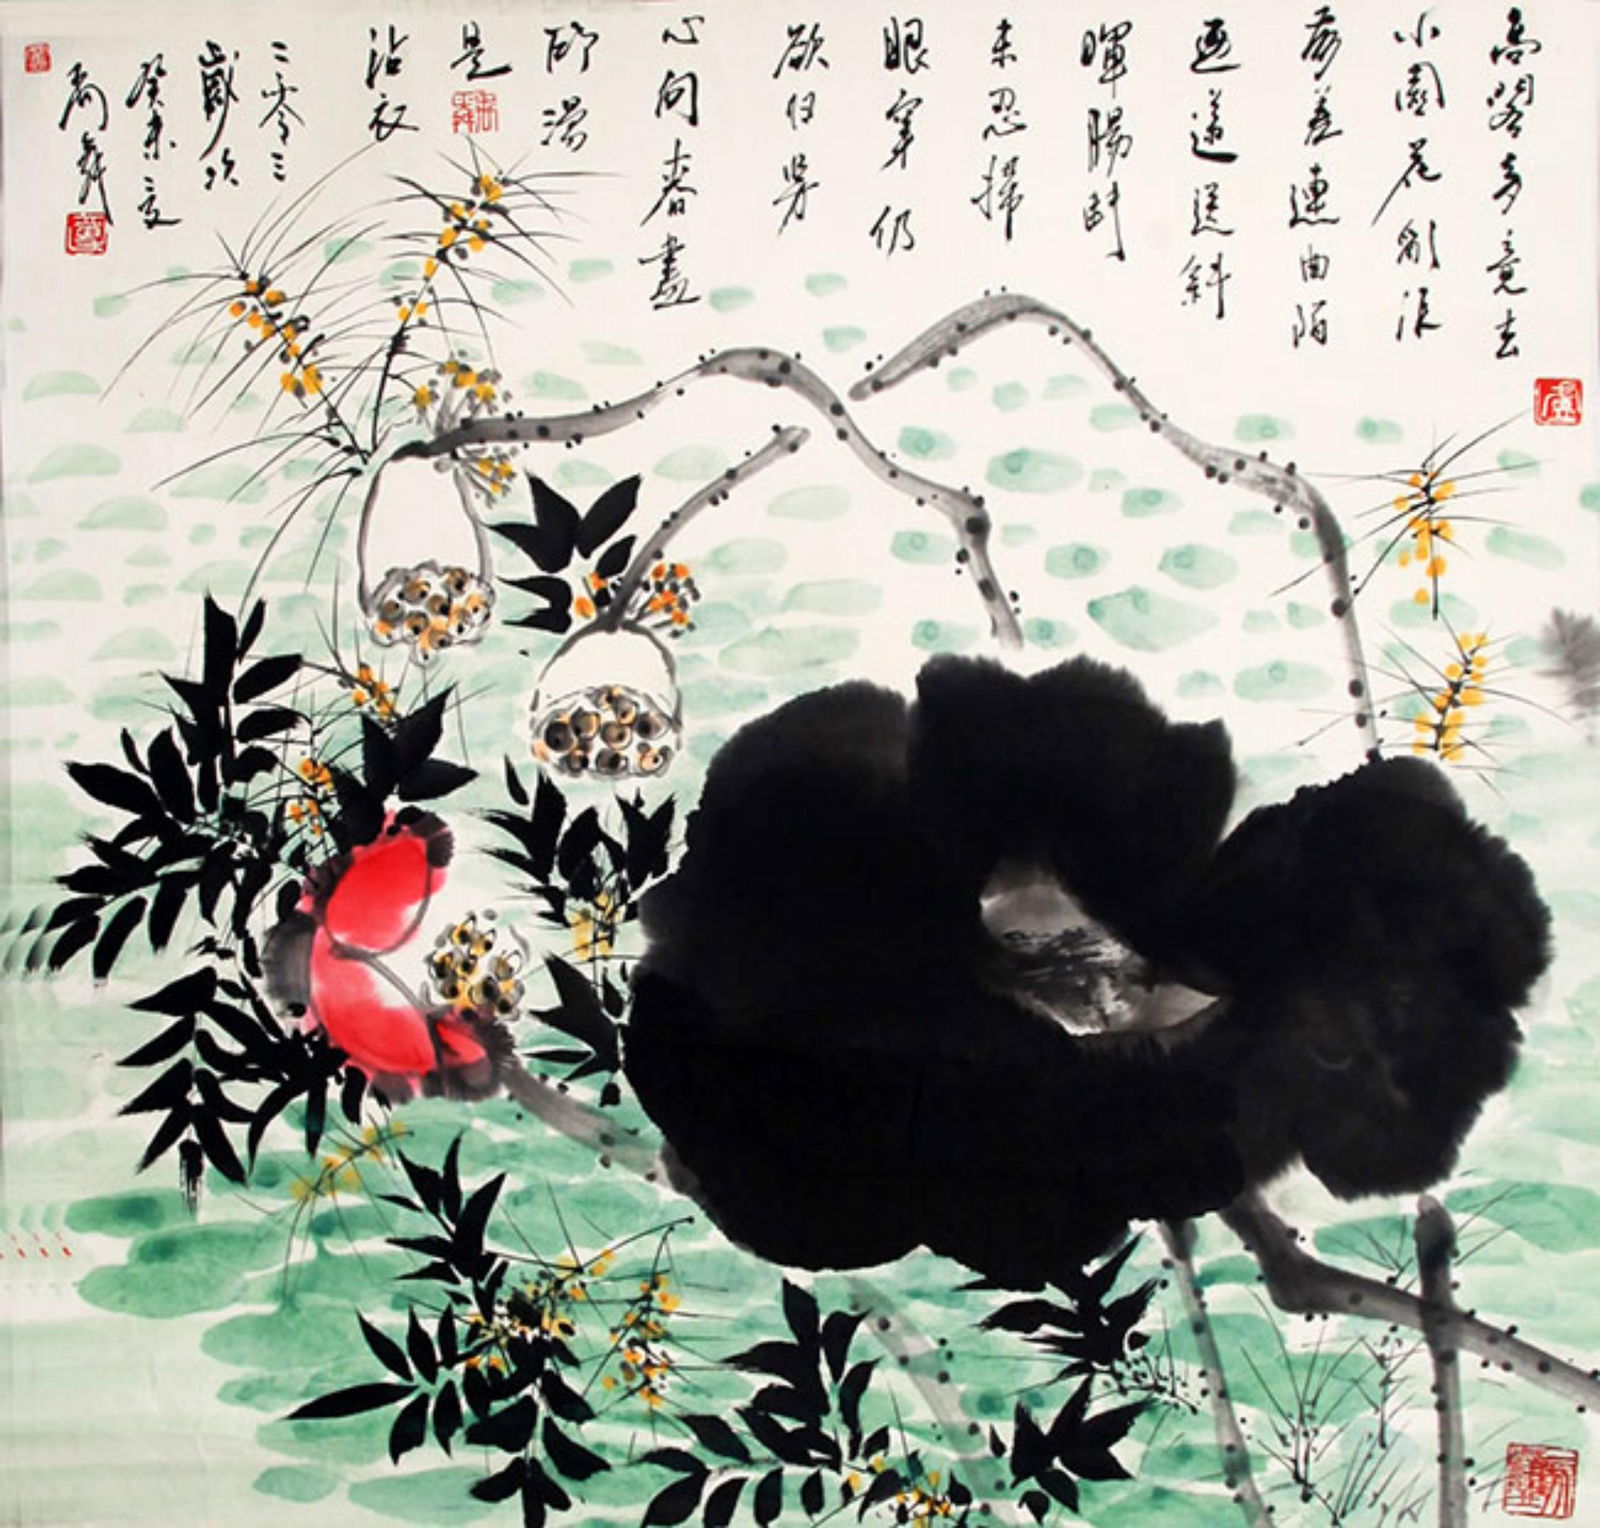 高閣客竟去
小園花亂飛
參差連曲陌
迢遞送斜
暉腸斷
未忍掃
眼穿仍
欲归芳
心向春盡
所得
是
沾衣
二零零三
歲次
癸未之夏